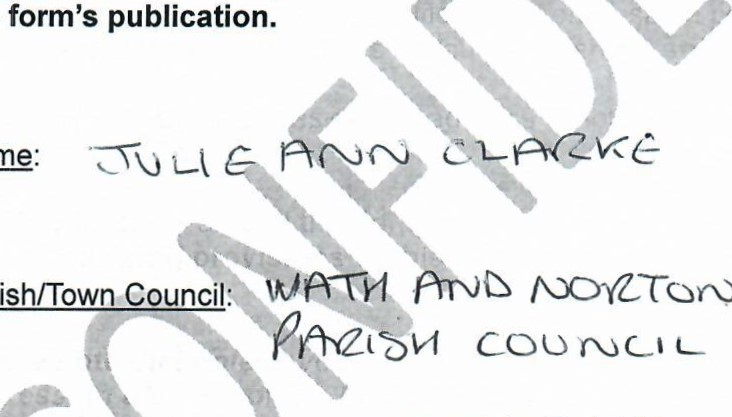 form's publication.
me: JULIE ANN CLARKE
ish/Town Council: WATH AND NORTON
PARISH COUNCIL
CONFIDE